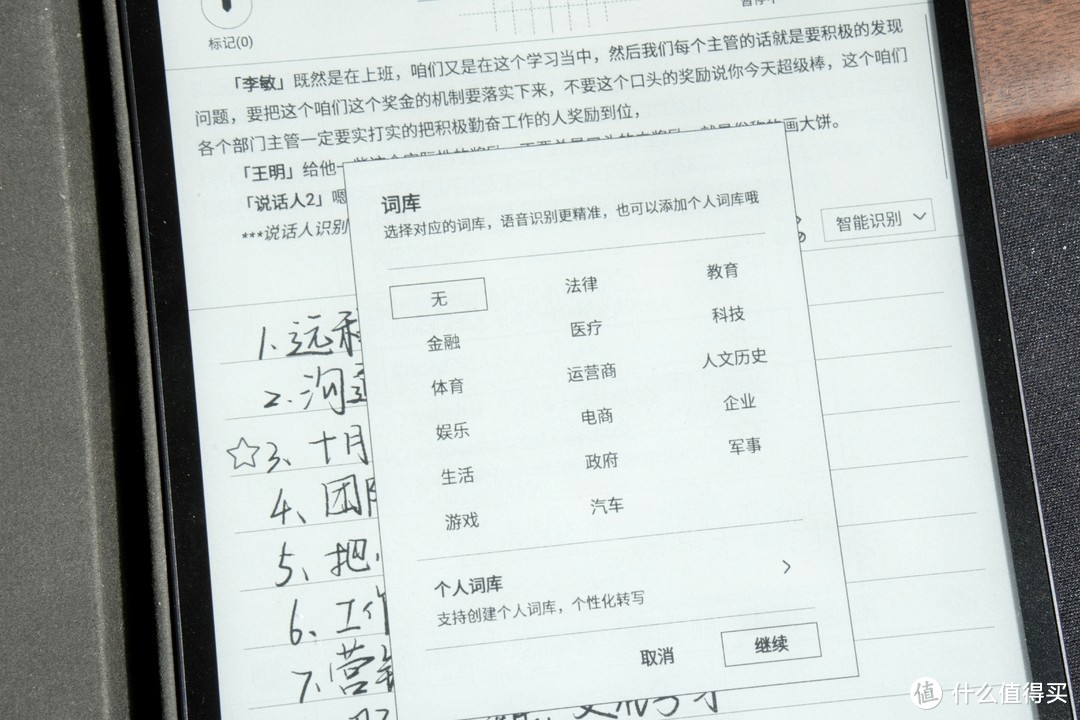 标记(0)
「李敏」既然是在上班，咱们又是在这个学习当中，然后我们每个主管的话就是要积极的发现
问题，要把这个咱们这个奖金的机制要落实下来，不要这个口头的奖励说你今天超级棒，这个咱们
各个部门主管一定要实打实的把积极勤奋工作的人奖励到位，
画大饼。
「王明」给他一
「说话人2」嗯
***说话人识别
智能识别
词库
选择对应的词库，语音识别更精准，也可以添加个人词库哦
无 法律 教育
金融 医疗 科技
体育 运营商 人文历史
娱乐 电商 企业
生活 政府 军事
游戏 汽车
个人词库
支持创建个人词库，个性化转写
取消 继续
1.远
2.沟
3、十月
4、团
5、把
6、工作
7.营
值 什么值得买